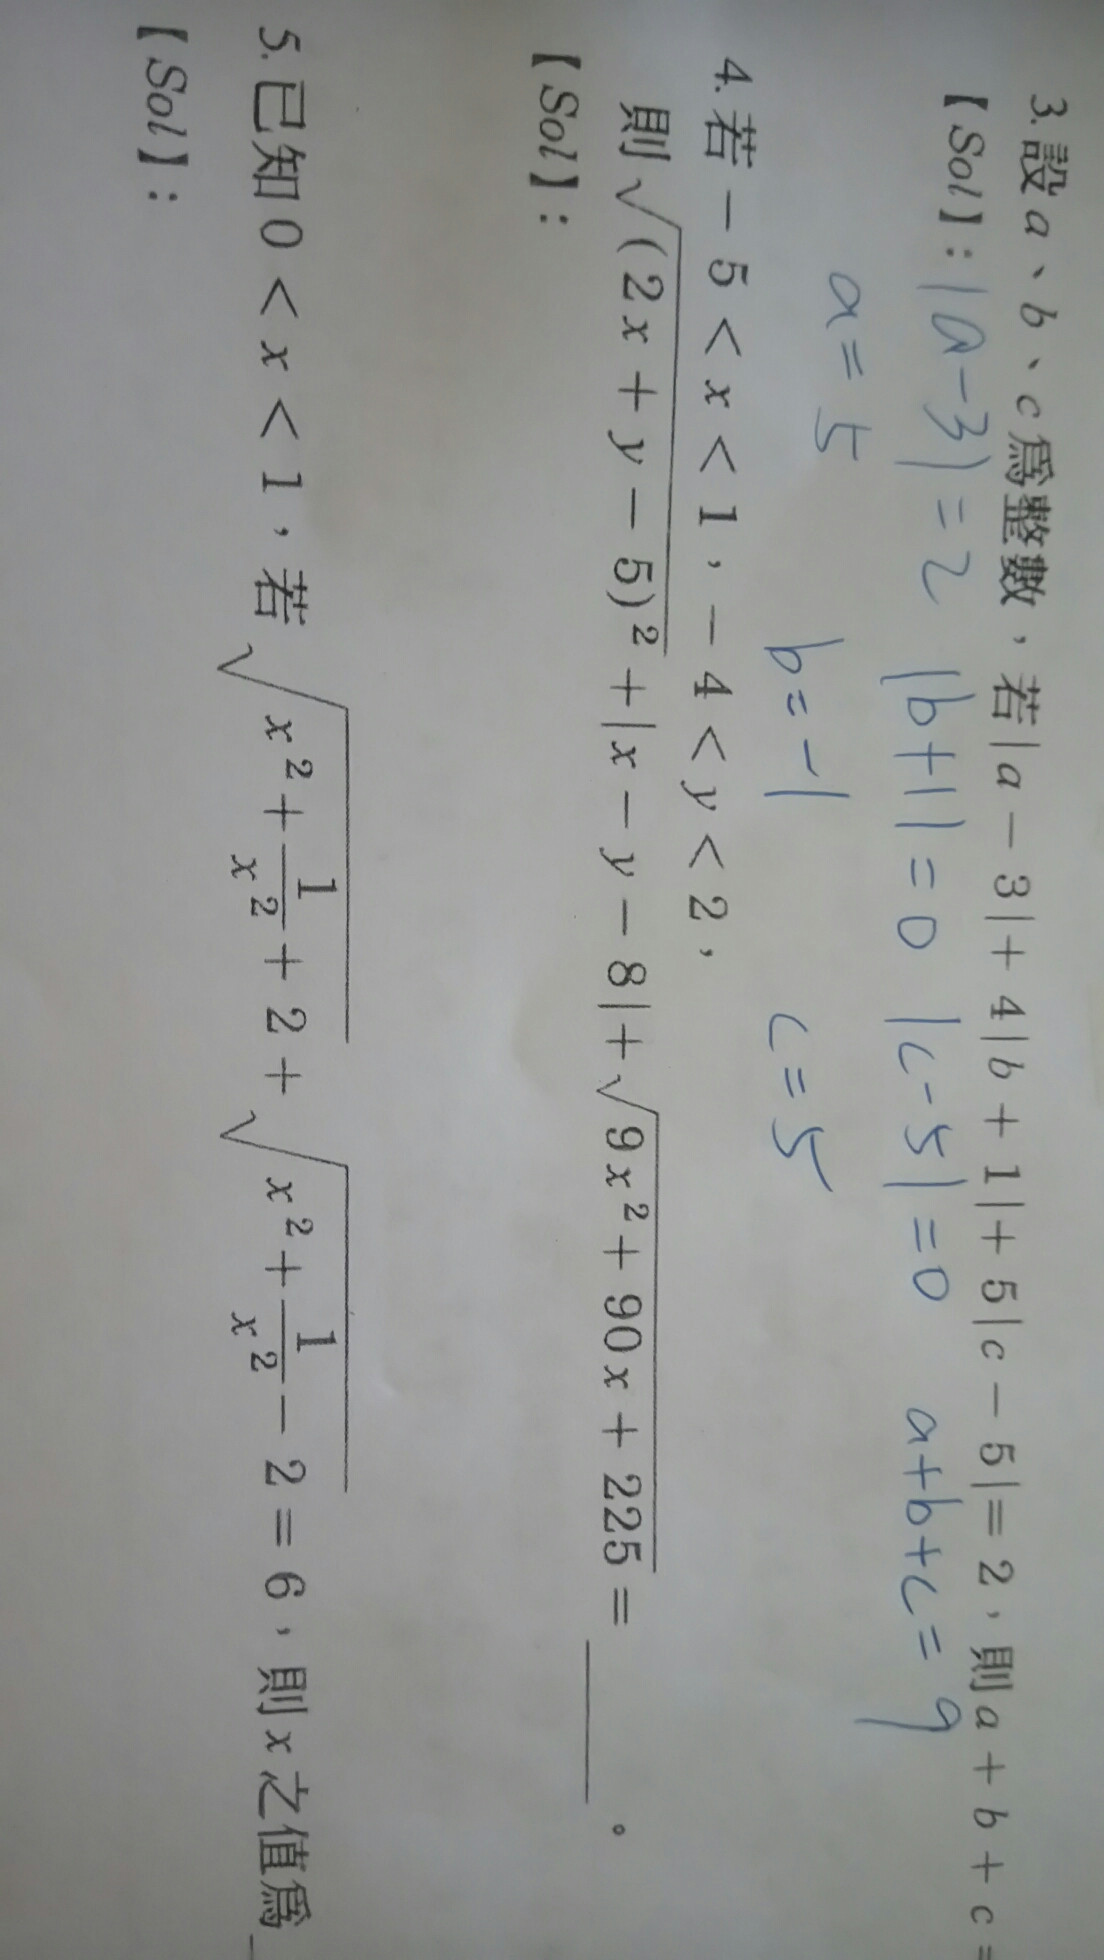 3.設a、b、c為整數，若|a－3|＋4|b＋1|＋5|c－5|＝2，則a＋b＋c＝
【Sol】：|a-3|=2 |b+1|=0 |c-5|=0 a+b+c=9
a=5 b=-1 c=5
4.若－5＜x＜1，－4＜y＜2，
則√(2x＋y－5)²＋|x－y－8|＋√9x²＋90x＋225＝＿＿＿。
【Sol】：
5.已知0＜x＜1，若√x²＋1/x²＋2＋√x²＋1/x²－2＝6，則x之值為
【Sol】：